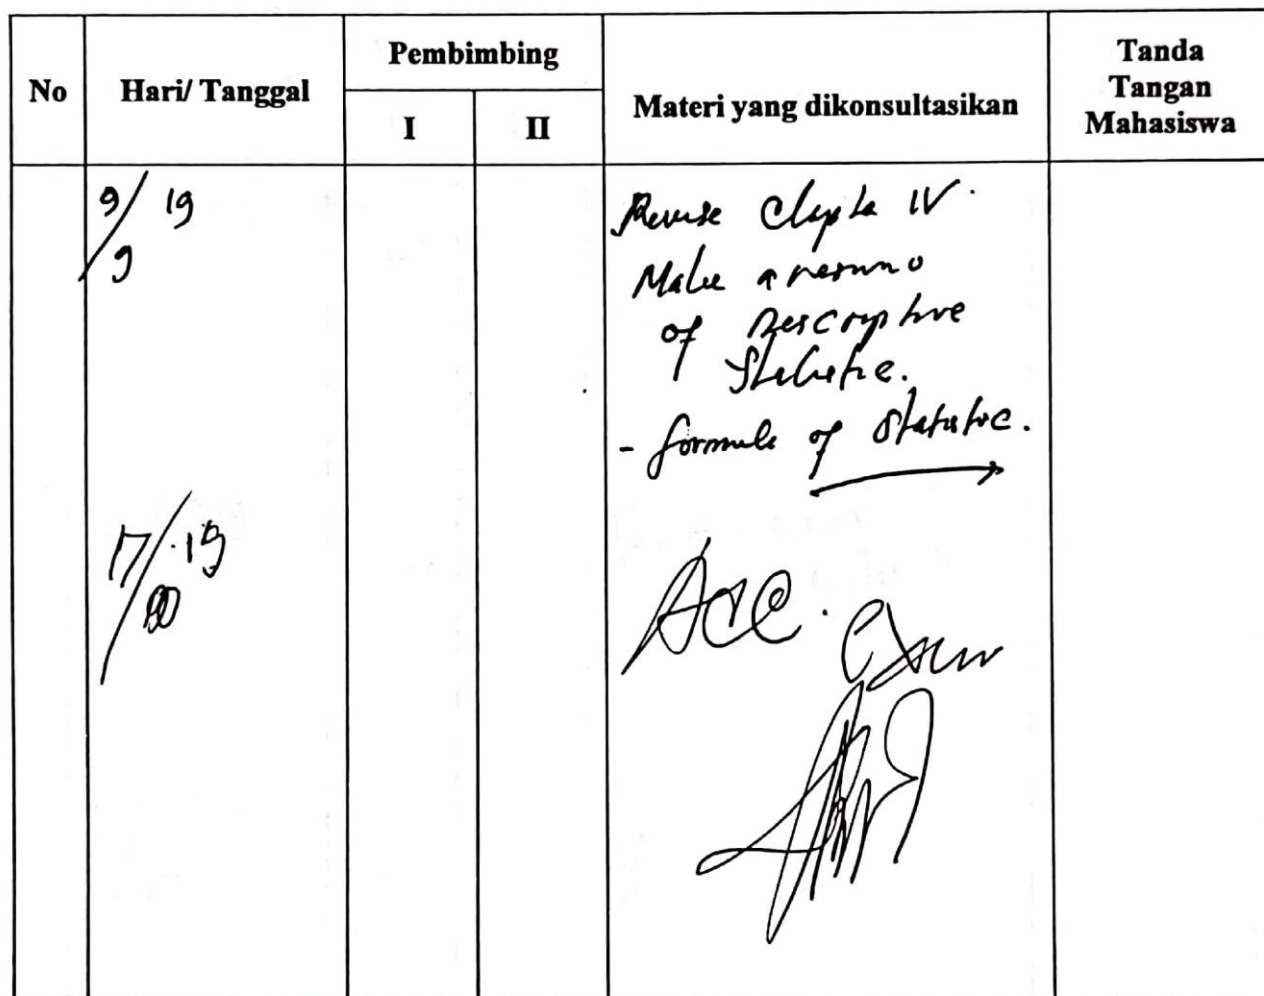 No
Hari/ Tanggal
Pembimbing
I
II
Materi yang dikonsultasikan
Tanda
Tangan
Mahasiswa
9/9 19
Revise Chapter IV.
Make a resume
of Descriptive
Statistic.
- formula of statistic.
17/ 19
Acc.